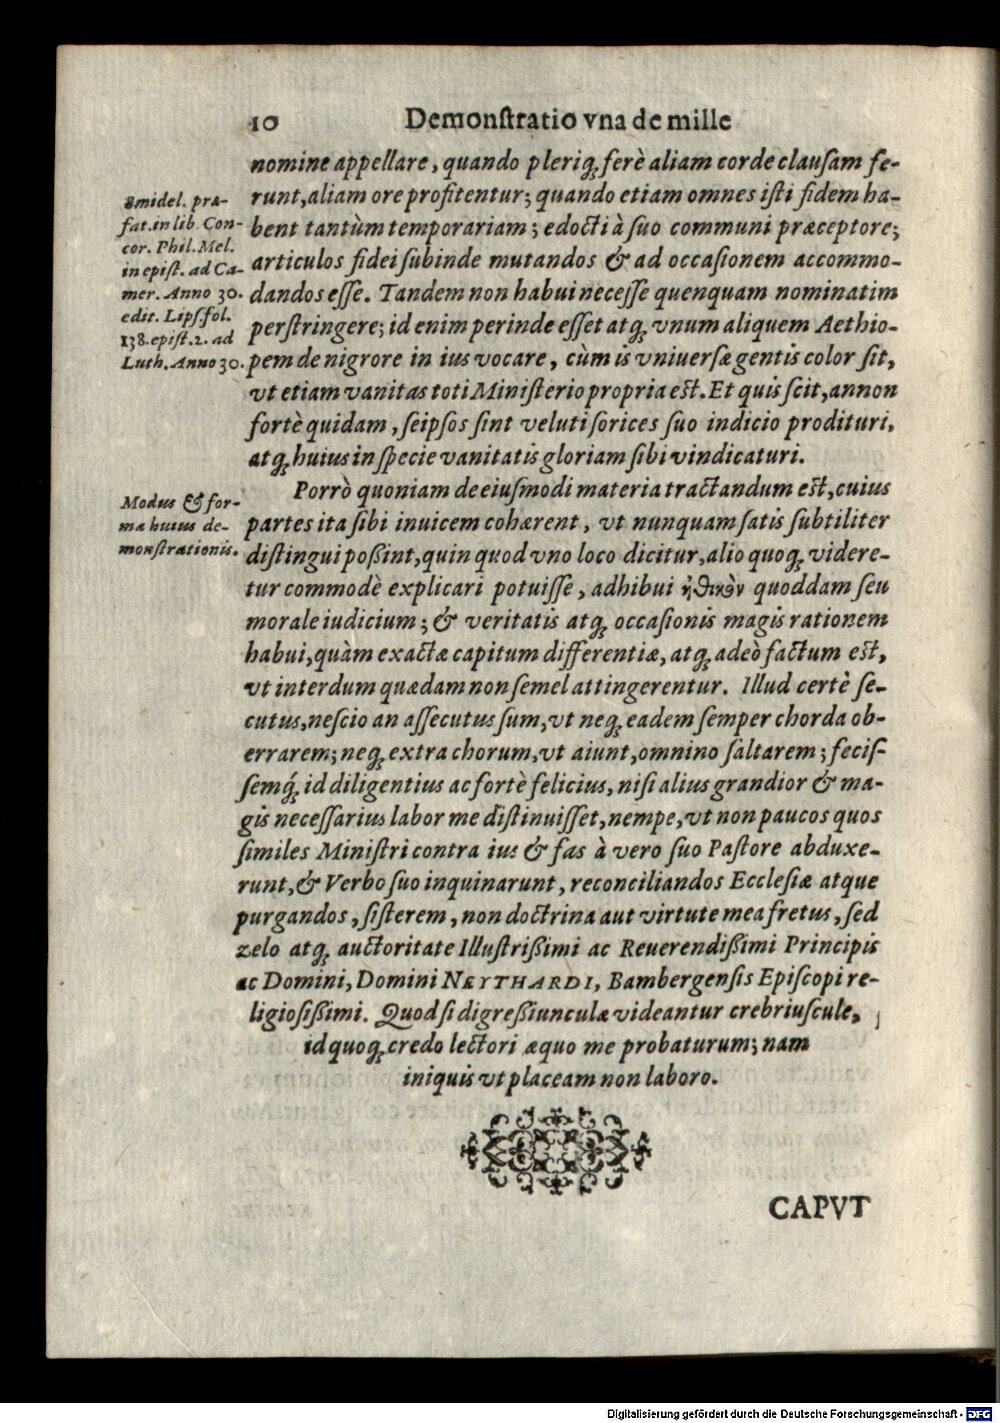 10 Demonſtratio vna de mille
nomine appellare, quando pleriq; ferè aliam corde clauſam fe-
runt, aliam ore profitentur; quando etiam omnes iſti fidem ha-
bent tantùm temporariam; edocti à ſuo communi præceptore;
articulos fidei ſubinde mutandos & ad occaſionem accommo-
dandos eſſe. Tandem non habui neceſſe quenquam nominatim
perſtringere; id enim perinde eſſet atq; vnum aliquem Aethio-
pem de nigrore in ius vocare, cùm is vniuerſæ gentis color ſit,
vt etiam vanitas toti Miniſterio propria eſt. Et quis ſcit, annon
fortè quidam, ſeipſos ſint veluti ſorices ſuo indicio prodituri,
atq; huius in ſpecie vanitatis gloriam ſibi vindicaturi.
Smidel. præ-
fat. in lib. Con-
cor. Phil. Mel.
in epiſt. ad Ca-
mer. Anno 30.
edit. Lipſ. fol.
138. epiſt. 2. ad
Luth. Anno 30.
Porrò quoniam de eiuſmodi materia tractandum eſt, cuius
partes ita ſibi inuicem cohærent, vt nunquam ſatis ſubtiliter
diſtingui poßint, quin quod vno loco dicitur, alio quoq; videre-
tur commodè explicari potuiſſe, adhibui ἠθικὸν quoddam ſeu
morale iudicium; & veritatis atq; occaſionis magis rationem
habui, quàm exactæ capitum differentiæ, atq; adeò factum eſt,
vt interdum quædam non ſemel attingerentur. Illud certè ſe-
cutus, neſcio an aſſecutus ſum, vt neq; eadem ſemper chorda ob-
errarem; neq; extra chorum, vt aiunt, omnino ſaltarem; feciſ-
ſemq́; id diligentius ac fortè felicius, niſi alius grandior & ma-
gis neceſſarius labor me diſtinuiſſet, nempe, vt non paucos quos
ſimiles Miniſtri contra ius & fas à vero ſuo Paſtore abduxe-
runt, & Verbo ſuo inquinarunt, reconciliandos Eccleſiæ atque
purgandos, ſiſterem, non doctrina aut virtute mea fretus, ſed
zelo atq; auctoritate Illuſtrißimi ac Reuerendißimi Principis
ac Domini, Domini NEYTHARDI, Bambergenſis Epiſcopi re-
ligioſißimi. Quod ſi digreßiunculæ videantur crebriuſculæ,
id quoq; credo lectori æquo me probaturum; nam
iniquis vt placeam non laboro.
Modus & for-
ma huius de-
monſtrationis.
CAPVT
Digitalisierung gefördert durch die Deutsche Forschungsgemeinschaft - DFG